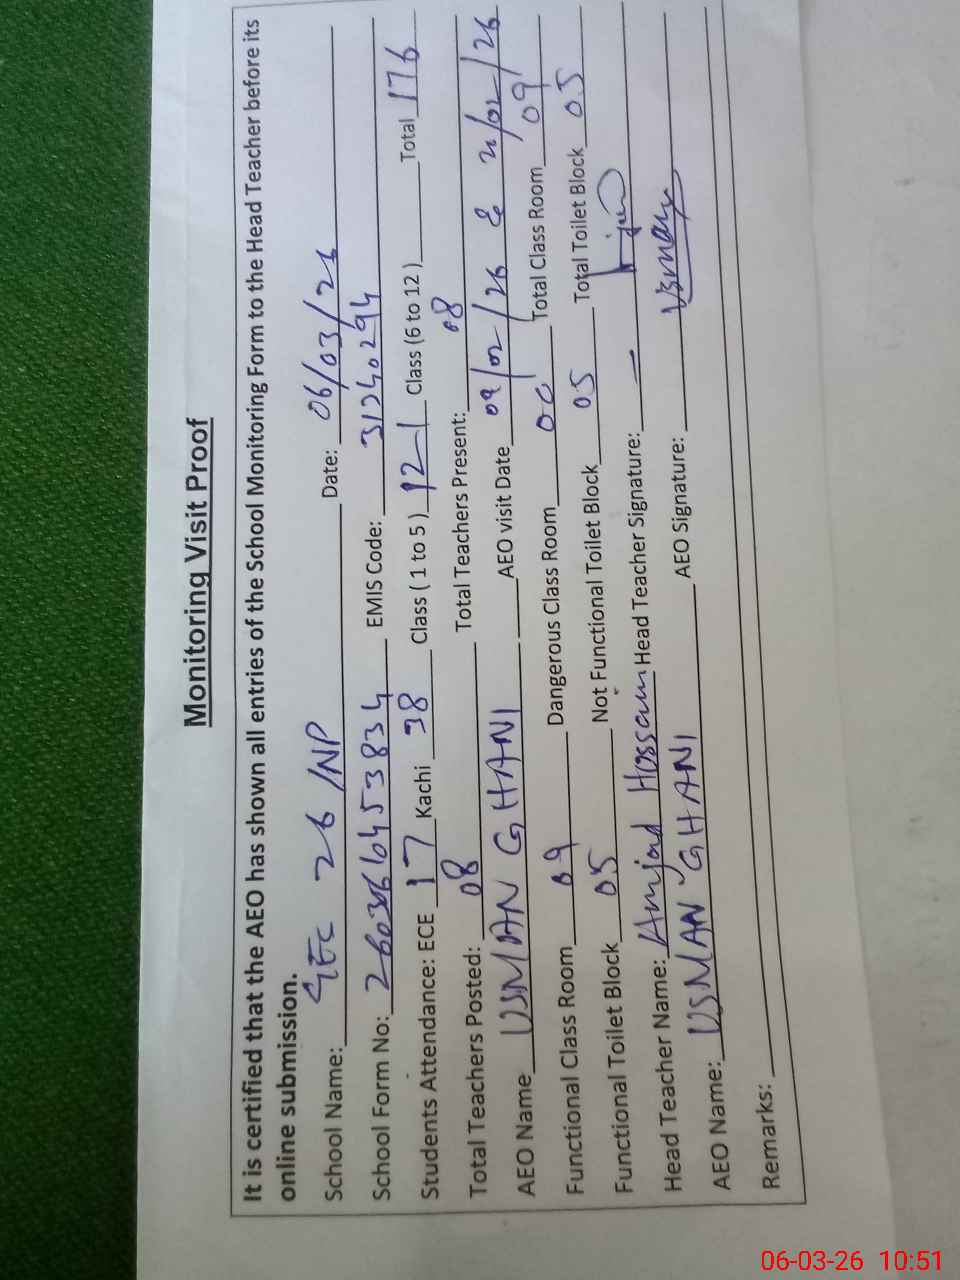 Monitoring Visit Proof
It is certified that the AEO has shown all entries of the School Monitoring Form to the Head Teacher before its
online submission.
School Name: GEC 26/NP Date: 06/03/26
School Form No: 26030616453834 EMIS Code: 31240294
Students Attendance: ECE 17 Kachi 38 Class ( 1 to 5 ) 121 Class (6 to 12 ) Total 176
Total Teachers Posted: 08 Total Teachers Present: 08
AEO Name USMAN GHANI AEO visit Date 09/02/26 &
Functional Class Room 09 Dangerous Class Room 00 Total Class Room 09
Functional Toilet Block 05 Not Functional Toilet Block 05 Total Toilet Block 05
Head Teacher Name: Amjad Hossain Head Teacher Signature:
AEO Name: USMAN GHANI AEO Signature: Usman
Remarks:
06-03-26 10:51